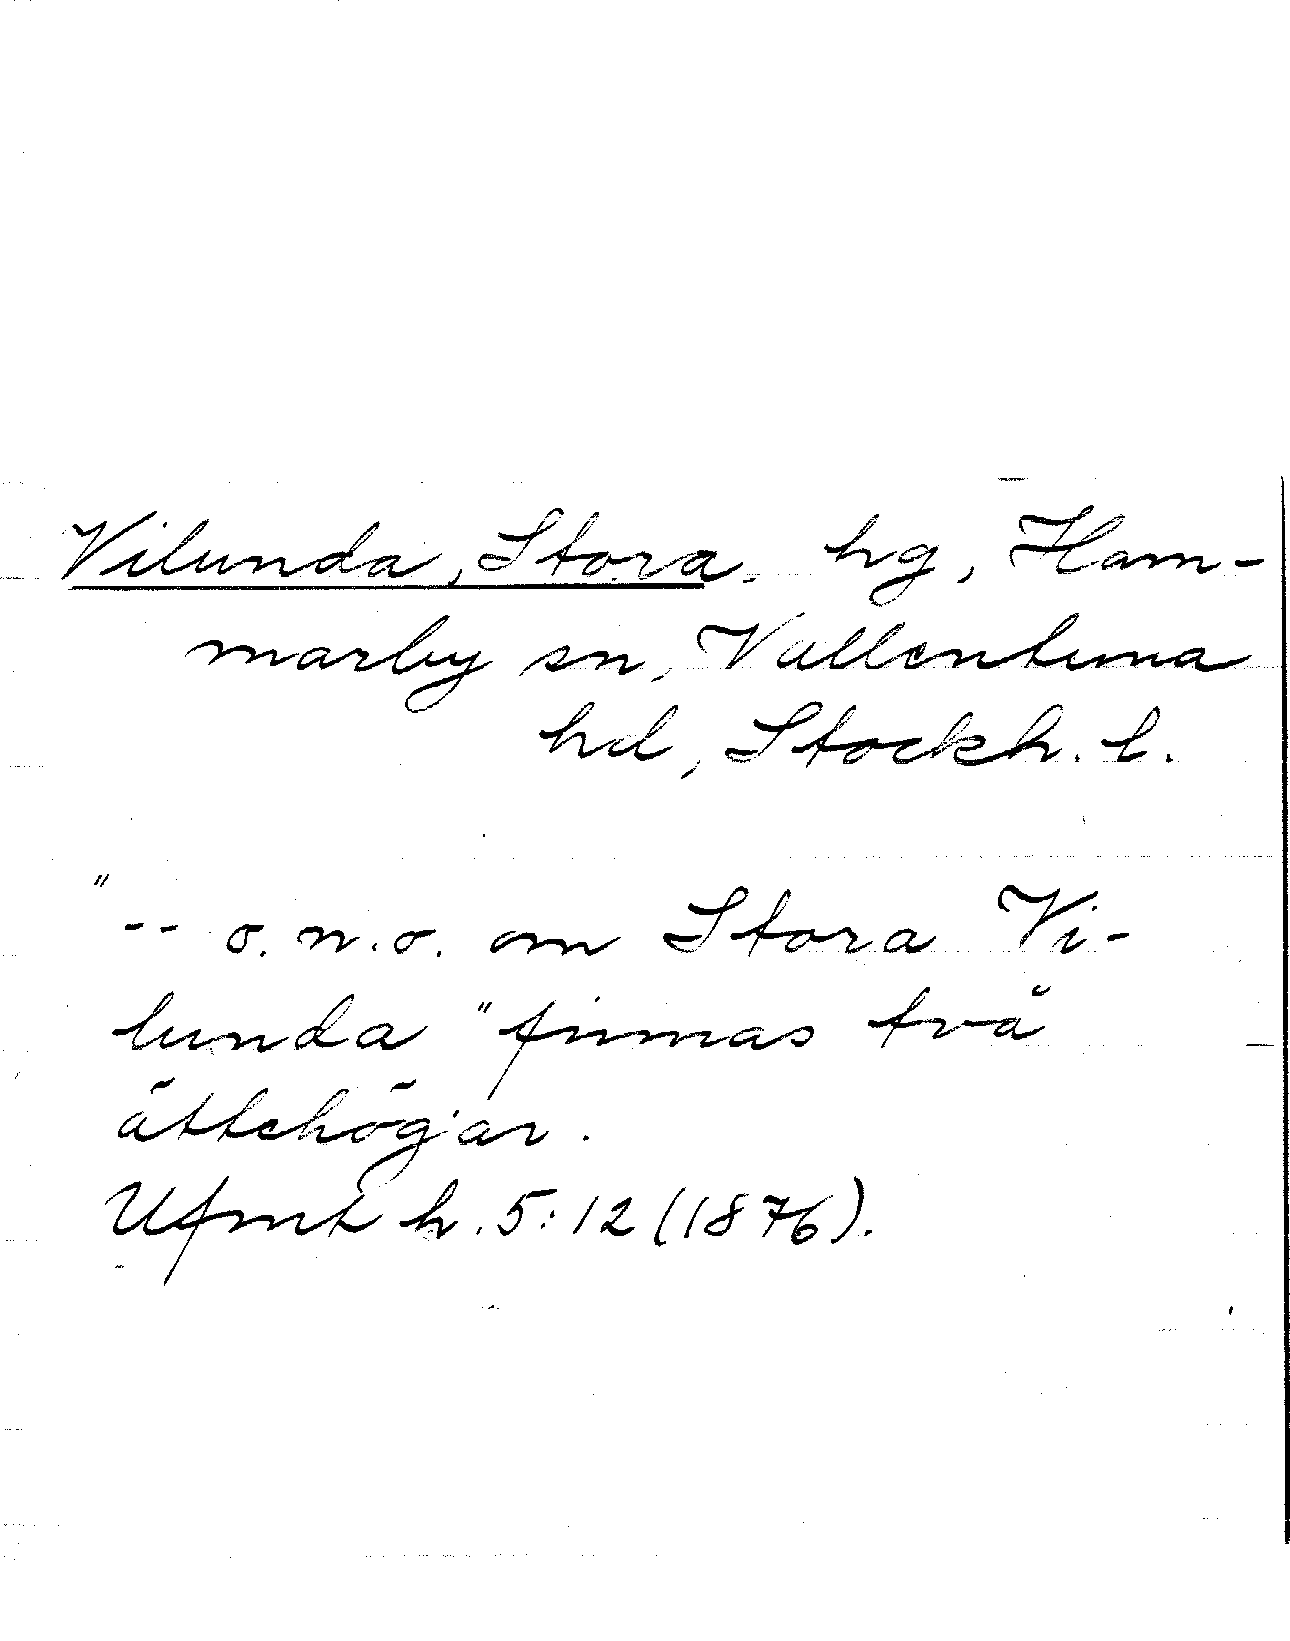 Vilunda, Stora. hg, Ham-
marby sn, Vallentuna
hd, Stockh. l.
"-- o.n.o. om Stora Vi-
lunda" finnas två
ättehögar.
Ufmt h. 5:12 (1876).